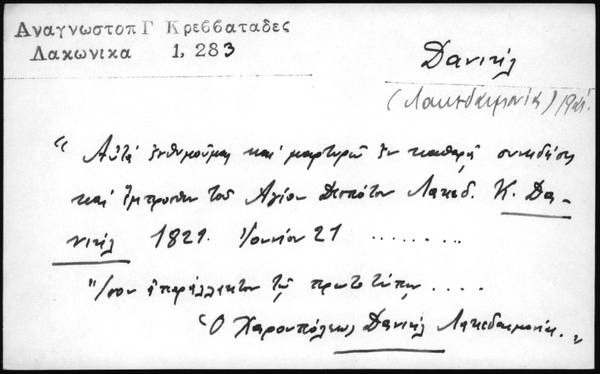 Αναγνωστοπ Γ Κρεββαταδες
Λακωνικα 1, 283
Δανιήλ
(Λακεδαιμονία) 1821.
“ Αὐτά ἐνθυμοῦμαι καί μαρτυρῶ ἐν καθαρᾷ συνειδήσει
καί ἔμπροσθεν τοῦ Ἁγίου Δεσπότου Λακεδ. Κ. Δα-
νιήλ 1821. Ἰουνίου 21 ........
“Ἴσον ἀπαράλλακτον τῷ πρωτοτύπῳ ....
Ὁ Χαρουπόλεως Δανιήλ Λακεδαιμονίας. ”